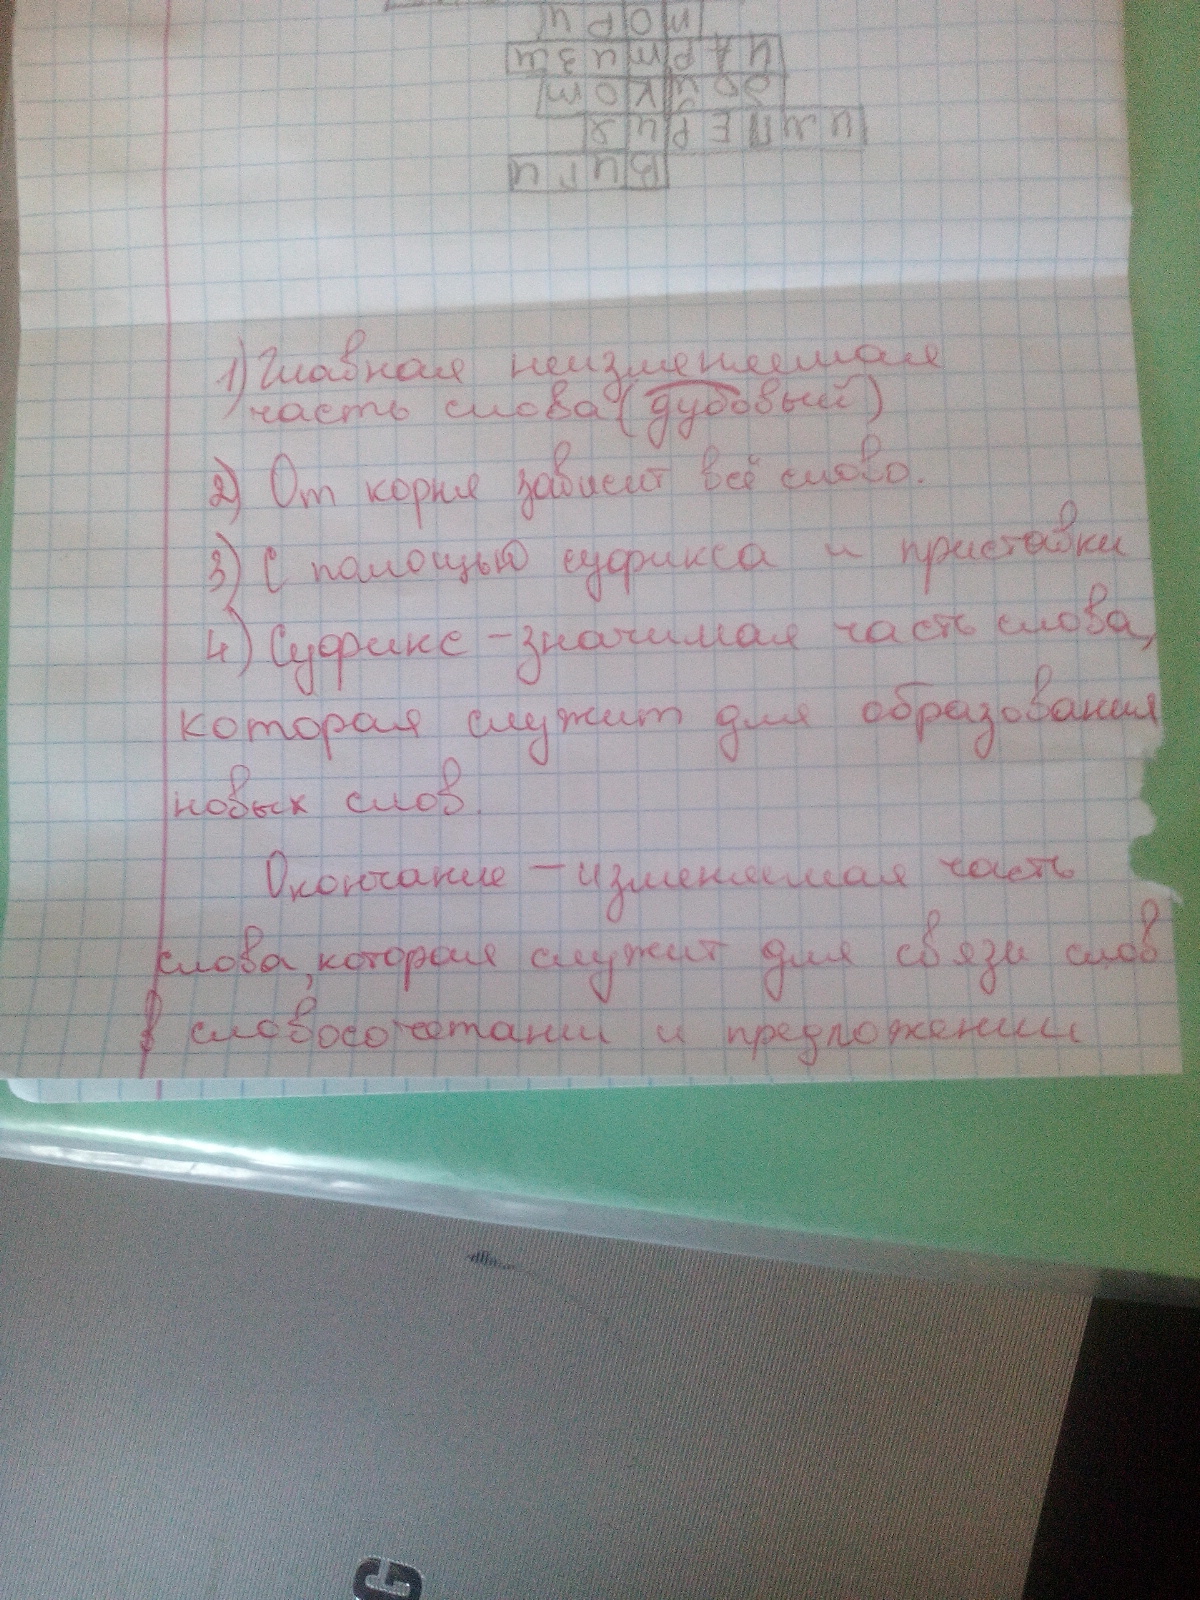 тори
чартизм
бойкот
империя
виги
1) Главная неизменяемая
часть слова (дубовый)
2) От корня зависит всё слово.
3) С помощью суфикса и приставки
4) Суфикс – значимая часть слова,
которая служит для образования
новых слов.
Окончание – изменяемая часть
слова, которая служит для связи слов
в словосочетании и предложении